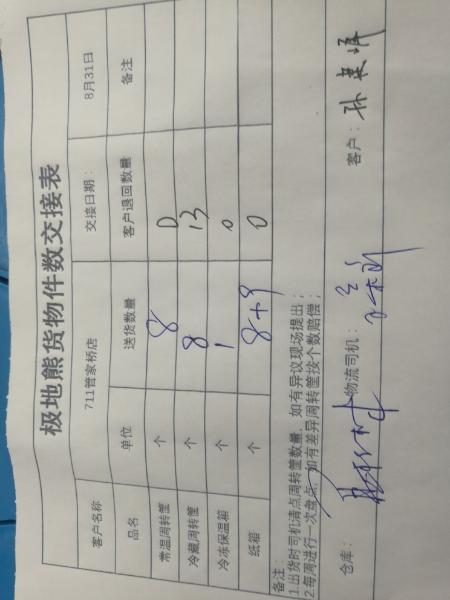 极地熊货物件数交接表
客户名称 711管家桥店 交接日期： 8月31日
品名 单位 送货数量 客户退回数量 备注
常温周转筐 个 8 0
冷藏周转筐 个 8 13
冷冻保温箱 个 1 0
纸箱 个 8+9 0
备注：
1.出货时司机清点周转筐数量，如有异议现场提出；
2.每周进行一次盘点，如有差异周转筐按个数赔偿；
仓库： 物流司机： 客户：